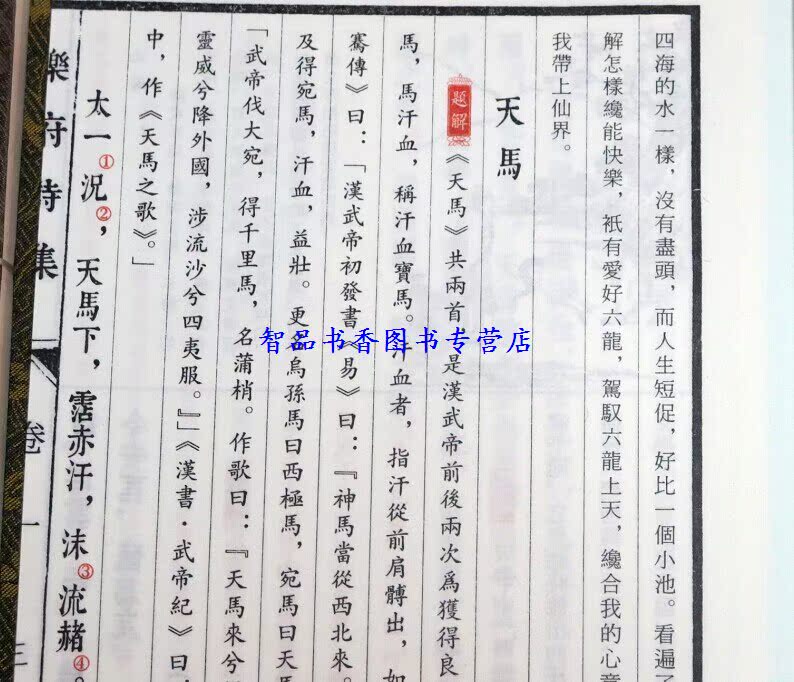 四海的水一樣，沒有盡頭，而人生短促，好比一個小池。看遍了
解怎樣纔能快樂，祇有愛好六龍，駕馭六龍上天，纔合我的心意
我帶上仙界。
天馬
題解
《天馬》共兩首，是漢武帝前後兩次爲獲得良
馬，馬汗血，稱汗血寶馬。汗血者，指汗從前肩髆出，如
騫傳》曰：「漢武帝初發書《易》曰：『神馬當從西北來。
及得宛馬，汗血，益壯。更名烏孫馬曰西極馬，宛馬曰天馬
「武帝伐大宛，得千里馬，名蒲梢。作歌曰：『天馬來兮
靈威兮降外國，涉流沙兮四夷服。』」《漢書·武帝紀》曰
中，作《天馬之歌》。」
太一①況②，天馬下，霑赤汗，沫③流赭④。
樂府詩集
卷一
三
智品书香图书专营店